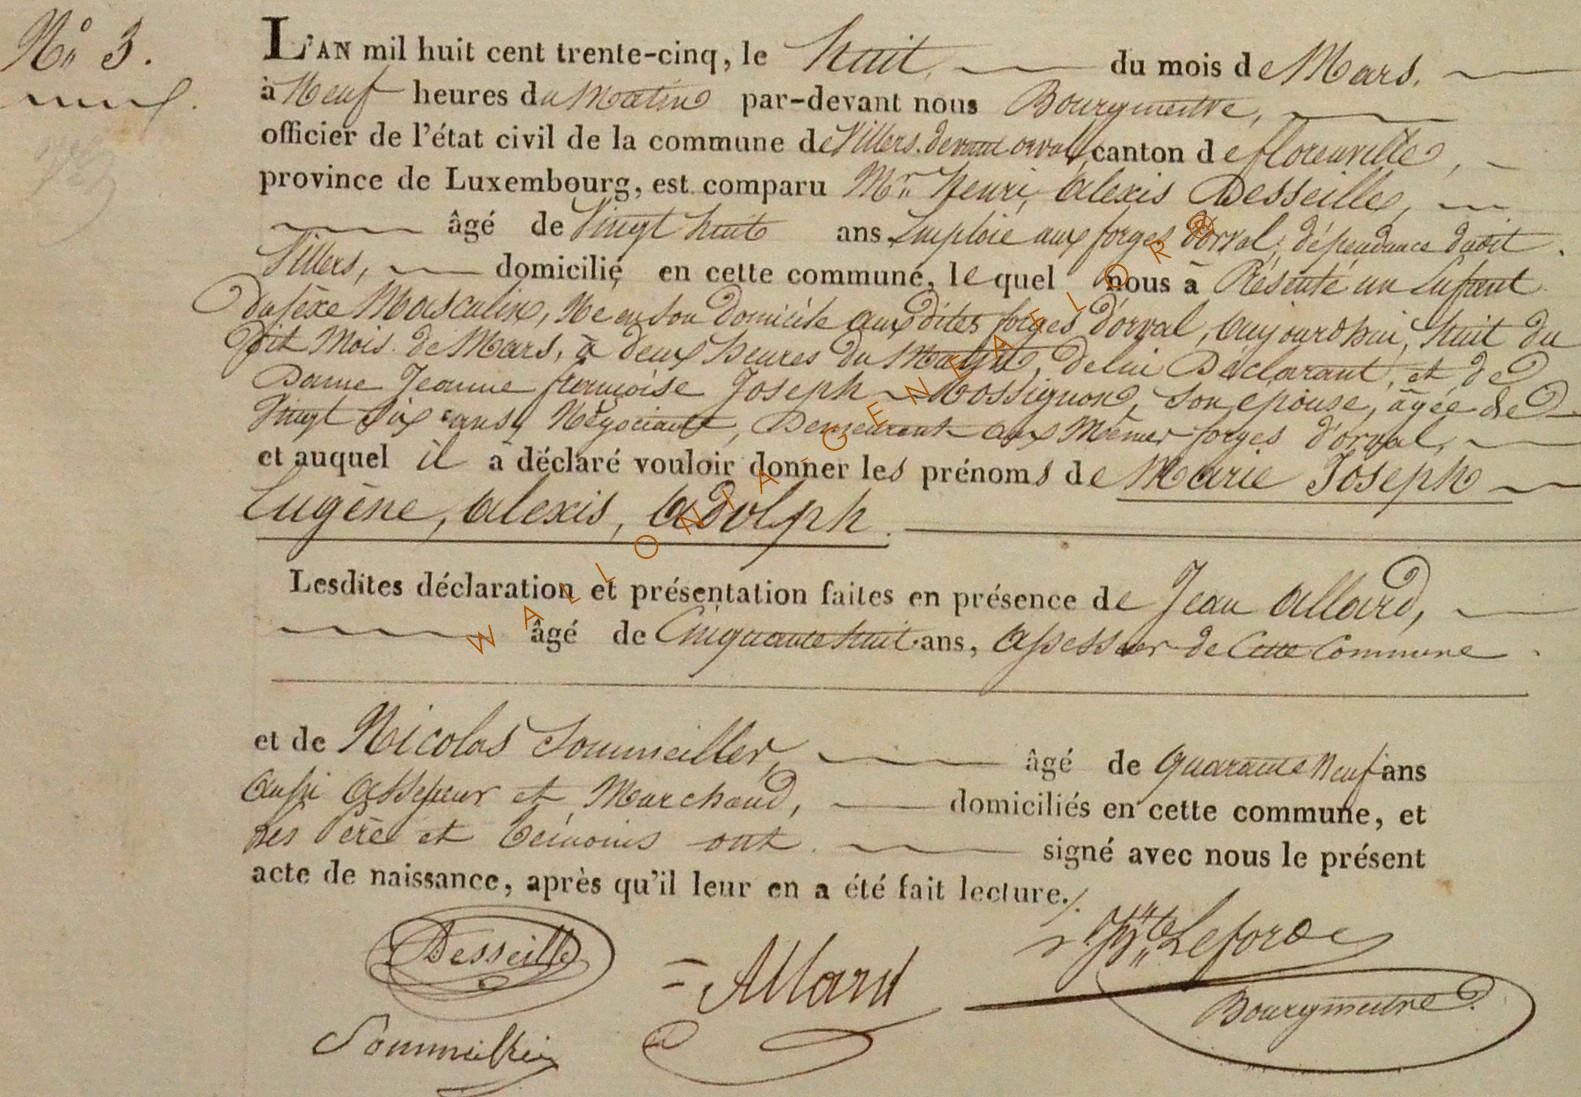 N° 3.
L'AN mil huit cent trente-cinq, le huit du mois de Mars.
à Neuf heures du Matin par-devant nous Bourgmestre,
officier de l'état civil de la commune de Villers devant orval, canton de florenville,
province de Luxembourg, est comparu Mr. Henri, Alexis Desseille,
âgé de Vingt huit ans Emploié aux forges d'orval, dépendance dudit
Villers, domicilié en cette commune, lequel nous à Présenté un Enfant
du sèxe Masculin, Né en son domicile aux dites forges d'orval, aujourdhui, huit du
dit Mois de Mars, à deux heures du Matin, de lui Déclarant, et de
Dame Jeanne françoise Joseph Rossignon, son épouse, âgée de
Vingt six ans, Négociante, Demeurant aux Mêmes forges d'orval,
et auquel il a déclaré vouloir donner les prénoms de Marie Joseph
Eugène, Alexis, Adolph.
Lesdites déclaration et présentation faites en présence de Jean Allard,
âgé de Cinquante huit ans, assesseur de Cette Commune
et de Nicolas Sommeiller, âgé de quarante Neuf ans
aussi assesseur et Marchand, domiciliés en cette commune, et
les Père et témoins ont signé avec nous le présent
acte de naissance, après qu'il leur en a été fait lecture./.
Desseille
Allard
Leforce
Bourgmestre
Sommeiller
WALLONIA-GENEAFLOR@